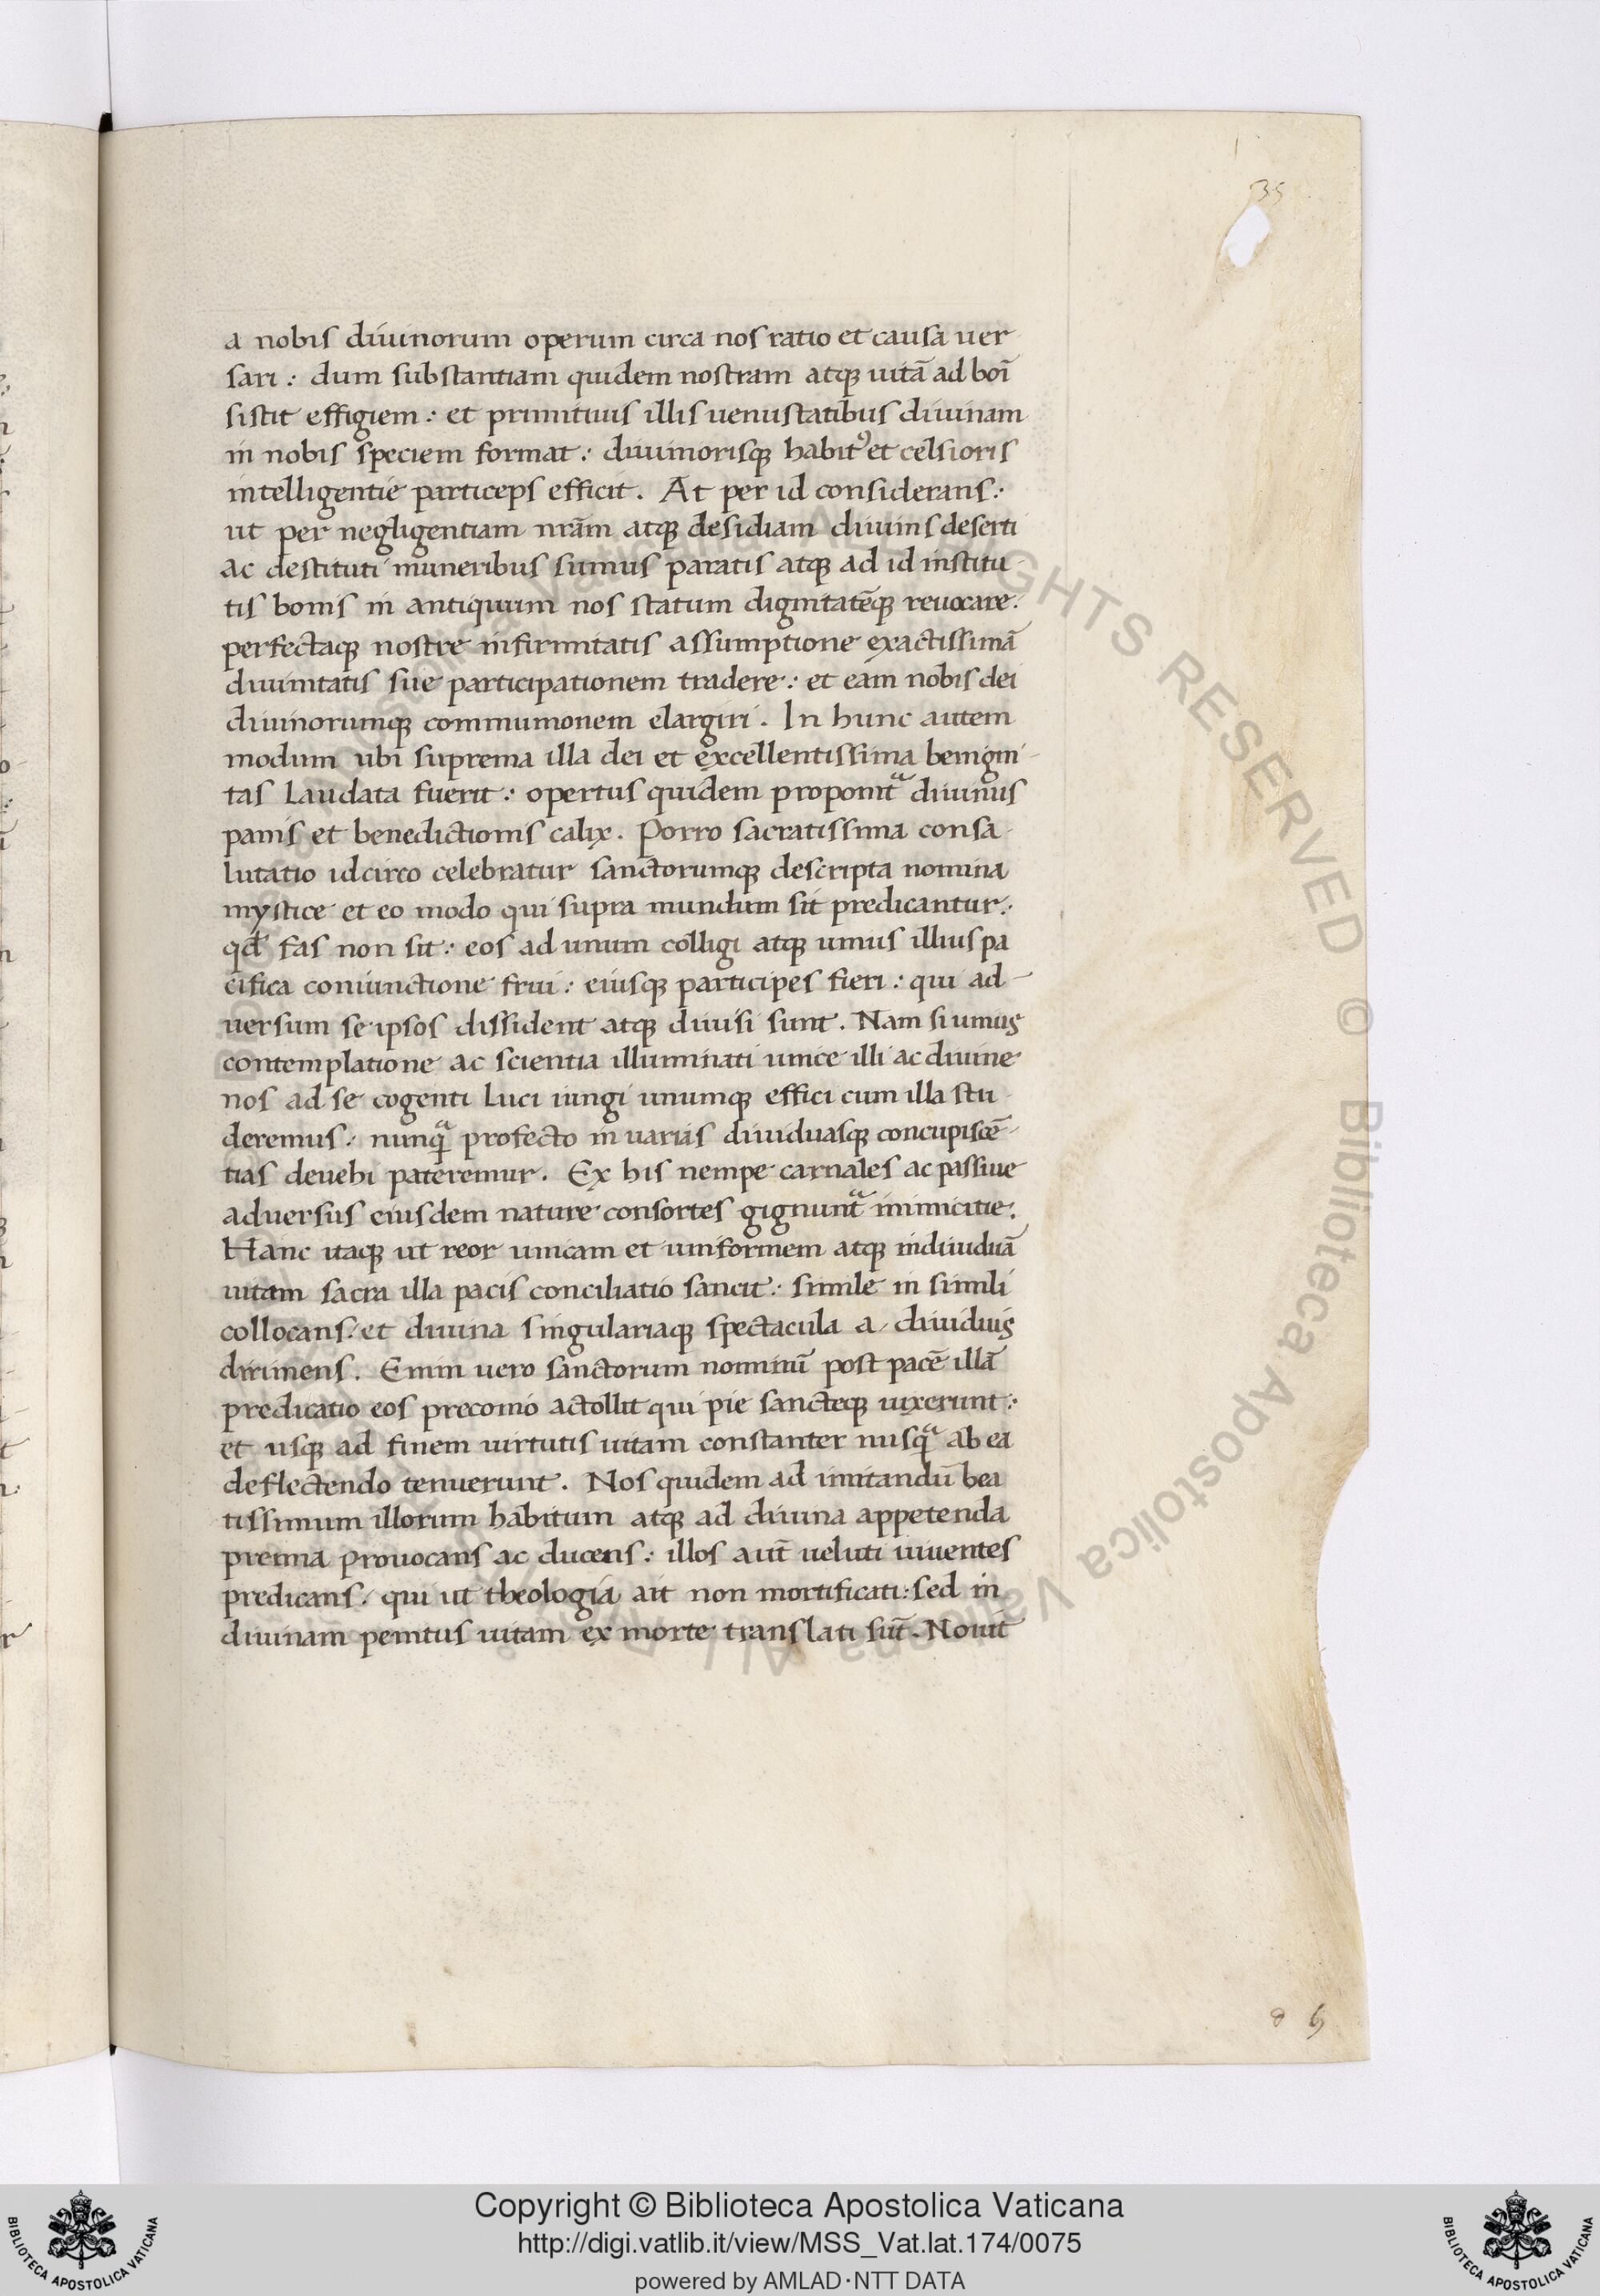 35
a nobis diuinorum operum circa nos ratio et causa uer
sari : dum substantiam quidem nostram atqꝫ uitā ad boī
sistit effigiem : et primitiuis illis uenustatibus diuinam
in nobis speciem format : diuiniorisqꝫ habitꝰ et celsioris
intelligentie particeps efficit . At per id considerans :
ut per negligentiam nrām atqꝫ desidiam diuinis deserti
ac destituti muneribus sumus paratis atqꝫ ad id institu-
tis bonis in antiquum nos statum dignitatēqꝫ reuocare :
perfectaqꝫ nostre infirmitatis assumptione exactissimā
diuinitatis sue participationem tradere : et eam nobis dei
diuinorumqꝫ communionem elargiri . In hunc autem
modum ubi suprema illa dei et excellentissima benigni-
tas laudata fuerit : opertus quidem proponitᵃ diuinus
panis et benedictionis calix . Porro sacratissima consa-
lutatio idcirco celebratur sanctorumqꝫ descripta nomina
mystice et eo modo qui supra mundum sit predicantur :
qđ fas non sit : eos ad unum colligi atqꝫ unius illius pa
cifica coniunctione frui : eiusqꝫ participes fieri : qui ad-
uersum se ipsos dissident atqꝫ diuisi sunt . Nam si unius
contemplatione ac scientia illuminati unice illi ac diuine
nos ad se cogenti luci iungi unumqꝫ effici cum illa stu-
deremus : nunqᵃ profecto in varias diuiduasqꝫ concupiscē-
tias deuehi pateremur . Ex his nempe carnales ac passiue
aduersus eiusdem nature consortes gignuntᵃ inimicitie :
Hanc itaqꝫ ut reor unicam et uniformem atqꝫ indiuiduā
uitam sacra illa pacis conciliatio sancit : simile in simili
collocans : et diuina singulariaqꝫ spectacula a diuiduis
dirimens . Enim uero sanctorum nominū post pacē illā
predicatio eos preconio actollit qui pie sancteqꝫ uixerunt :
et usqꝫ ad finem uirtutis uitam constanter nusqᵃ ab ea
deflectendo tenuerunt . Nos quidem ad imitandū bea
tissimum illorum habitum atqꝫ ad diuina appetenda
premia prouocans ac ducens : illos aut̄ ueluti uiuentes
predicans : qui ut theologia ait non mortificati : sed in
diuinam penitus uitam ex morte translati sūt . Nouit
Copyright © Biblioteca Apostolica Vaticana
http://digi.vatlib.it/view/MSS_Vat.lat.174/0075
powered by AMLAD·NTT DATA
BIBLIOTECA APOSTOLICA VATICANA
BIBLIOTECA APOSTOLICA VATICANA